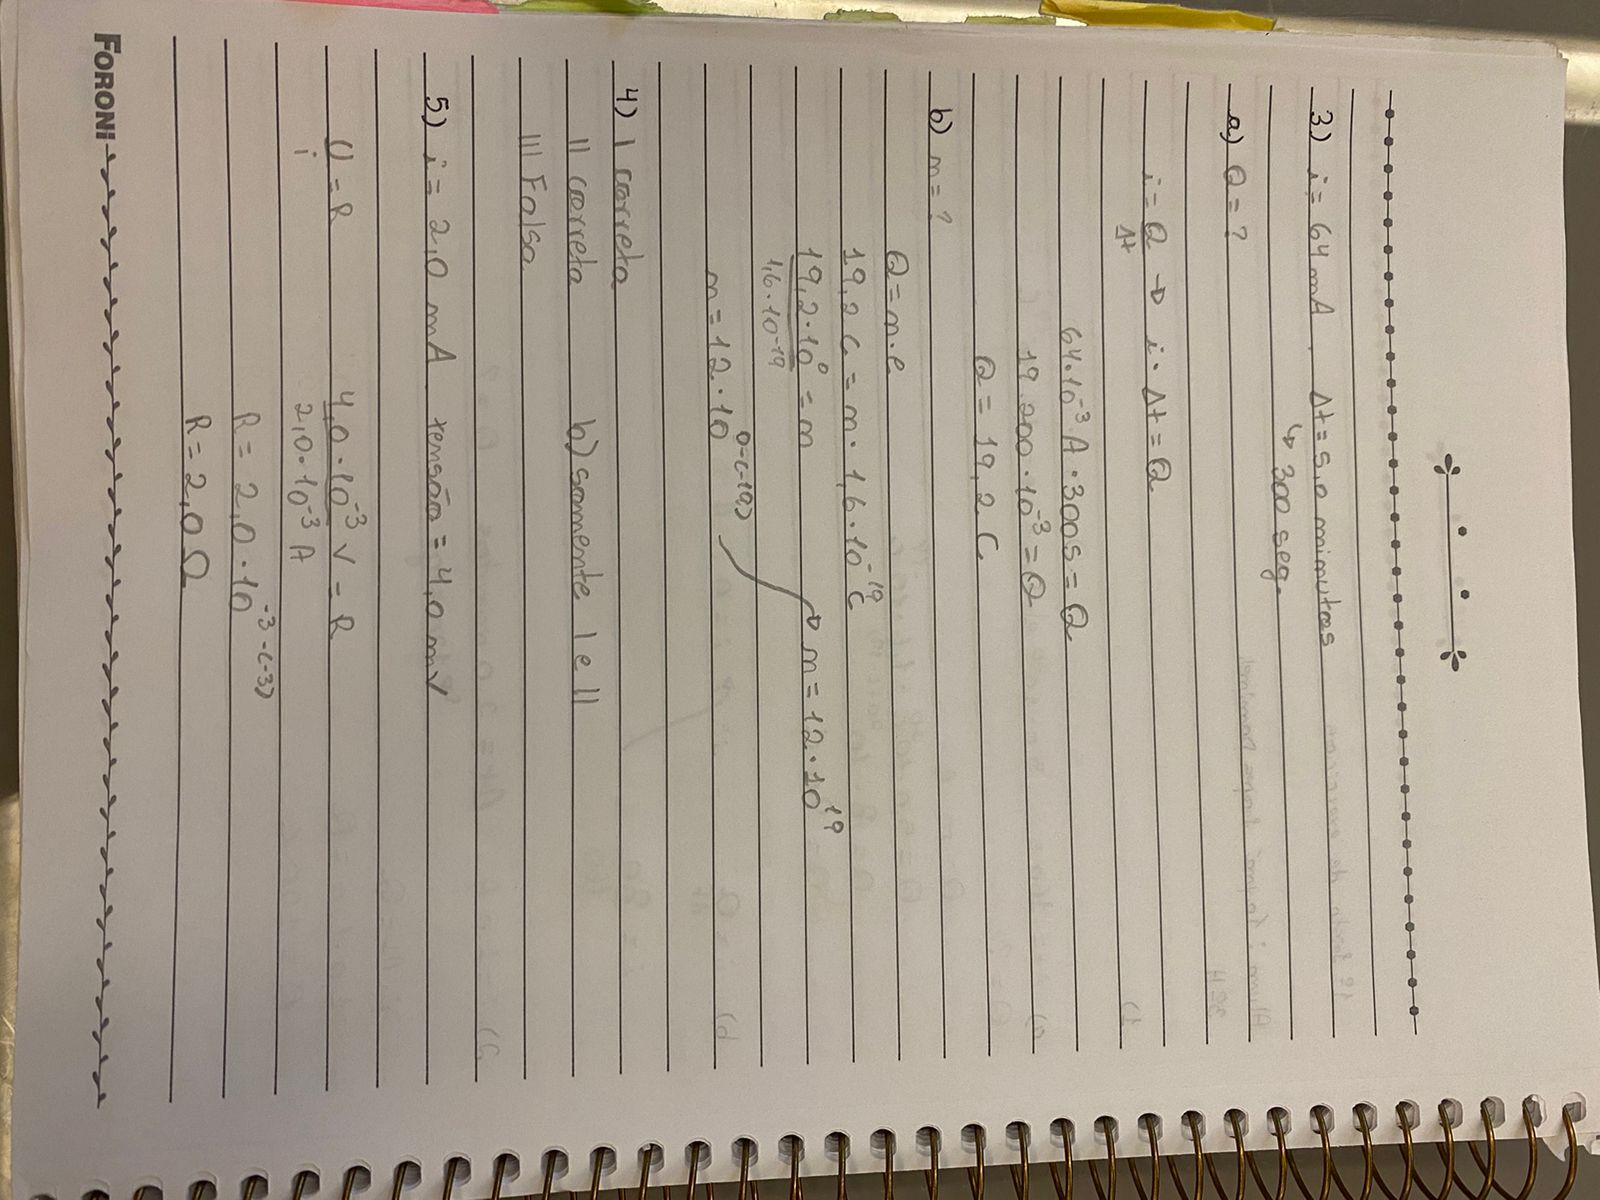 3) i = 64 mA. Δt = 5,0 minutos
↳ 300 seg.
a) Q = ?
i = Q/Δt → i · Δt = Q
64·10⁻³ A · 300s = Q
19.200 · 10⁻³ = Q
Q = 19,2 C
b) n = ?
Q = n.e
19,2 C = n · 1,6 · 10⁻¹⁹ C
19,2·10⁰/1,6·10⁻¹⁹ = n → n = 12 · 10¹⁹
n = 12 · 10⁰⁻⁽⁻¹⁹⁾
4) I correta
II correta b) somente I e II
III Falsa
5) i = 2,0 mA. tensão = 4,0 mV
U/i = R 4,0·10⁻³ V/2,0·10⁻³ A = R
R = 2,0 · 10⁻³⁻⁽⁻³⁾
R = 2,0 Ω
FORONI